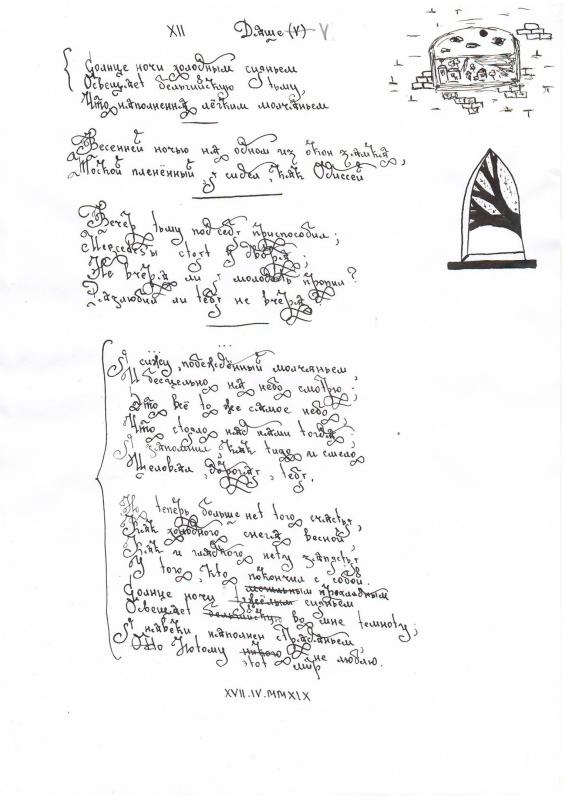 XII Даше (V) V
Солнце ночи холодным сияньем
Освещает бельгийскую тьму,
Что наполненна лёгким молчаньем
Весенней ночью на одном из окон замка,
Тоской пленённый, я сидел, как Одиссей
Вечер тьму под себя приспособил;
Мерседесы стоят у двора;
Не вчера ли я молодость пропил?
Разлюбил ли тебя не вчера?
...
Я сижу, побеждённый молчаньем,
И бесцельно на небо смотрю;
Это всё то же самое небо,
Что стояло над нами тогда;
Я запомнил, как тихо и смело
Целовал, дорогая, тебя.
Но теперь больше нет того счастья,
Как холодного снега весной,
Как и гладкого нету запястья
У того, кто покончил с собой.
печальным прохладным
Солнце ночи весёлым сияньем
Освещает бельгийскую во мне темноту;
Я навеки наполнен страданьем,
И потому этот мир не люблю.
XVII.IV.MMXIX